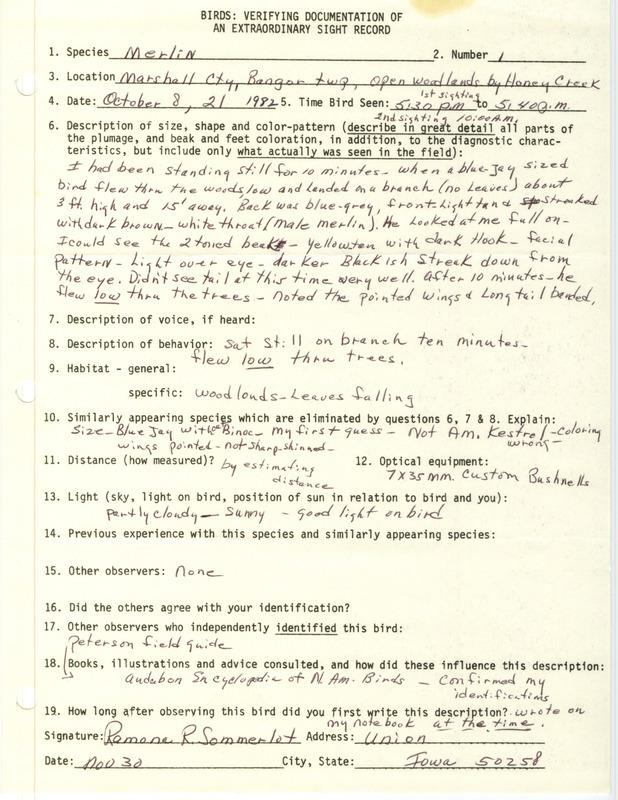 BIRDS: VERIFYING DOCUMENTATION OF
AN EXTRAORDINARY SIGHT RECORD
1. Species Merlin 2. Number 1
3. Location Marshall Cty, Bangor twp, open woodlands by Honey Creek
1st sighting
4. Date: October 8, 21 1982 5. Time Bird Seen: 5:30 pm to 5:40 p.m.
2nd sighting 10:00 A.M.
6. Description of size, shape and color-pattern (describe in great detail all parts of
the plumage, and beak and feet coloration, in addition, to the diagnostic charac-
teristics, but include only what actually was seen in the field):
I had been standing still for 10 minutes - when a blue-jay sized
bird flew thru the woods low and landed on a branch (no leaves) about
3 ft high and 15' away. Back was blue-grey, front light and streaked
with dark brown - white throat (male merlin). He looked at me full on -
I could see the 2 toned beak - yellow ten with dark Hook - facial
pattern - Light over eye - darker Blackish streak down from
the eye. Didn't see tail at this time very well. After 10 minutes - he
flew low thru the trees - Noted the pointed wings & Long tail banded.
7. Description of voice, if heard:
8. Description of behavior: Sat still on branch ten minutes -
flew low thru trees.
9. Habitat - general:
specific: Woodlands - Leaves falling
10. Similarly appearing species which are eliminated by questions 6, 7 & 8. Explain:
Size - Blue Jay with Binoc - my first guess - Not Am. Kestrel - coloring
wrong -
wings pointed - not sharp-shinned -
11. Distance (how measured)? by estimating
distance
12. Optical equipment:
7 X 35 mm. Custom Bushnells
13. Light (sky, light on bird, position of sun in relation to bird and you):
partly cloudy - Sunny - good light on bird
14. Previous experience with this species and similarly appearing species:
15. Other observers: None
16. Did the others agree with your identification?
17. Other observers who independently identified this bird:
Peterson field guide
18. Books, illustrations and advice consulted, and how did these influence this description:
Audubon Encyclopedia of N. Am. Birds - Confirmed my
identifications
19. How long after observing this bird did you first write this description? wrote on
my notebook at the time.
Signature: Ramona R. Sommerlot Address: Union
Date: Nov 30 City, State: Iowa 50258